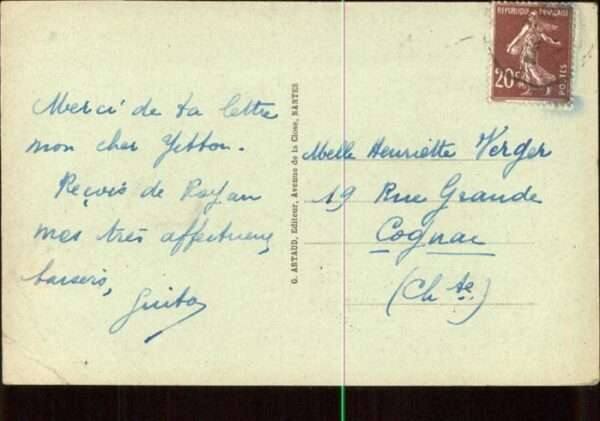 Merci de ta lettre
mon cher Yetton.
Reçois de Royan
mes très affectueux
baisers,
G. ARTAUD, Editeur, Avenue de la Close, NANTES
REPUBLIQUE FRANÇAISE
20c
POSTES
Melle Henriette Verger
19 Rue Grande
Cognac
(Ch te)